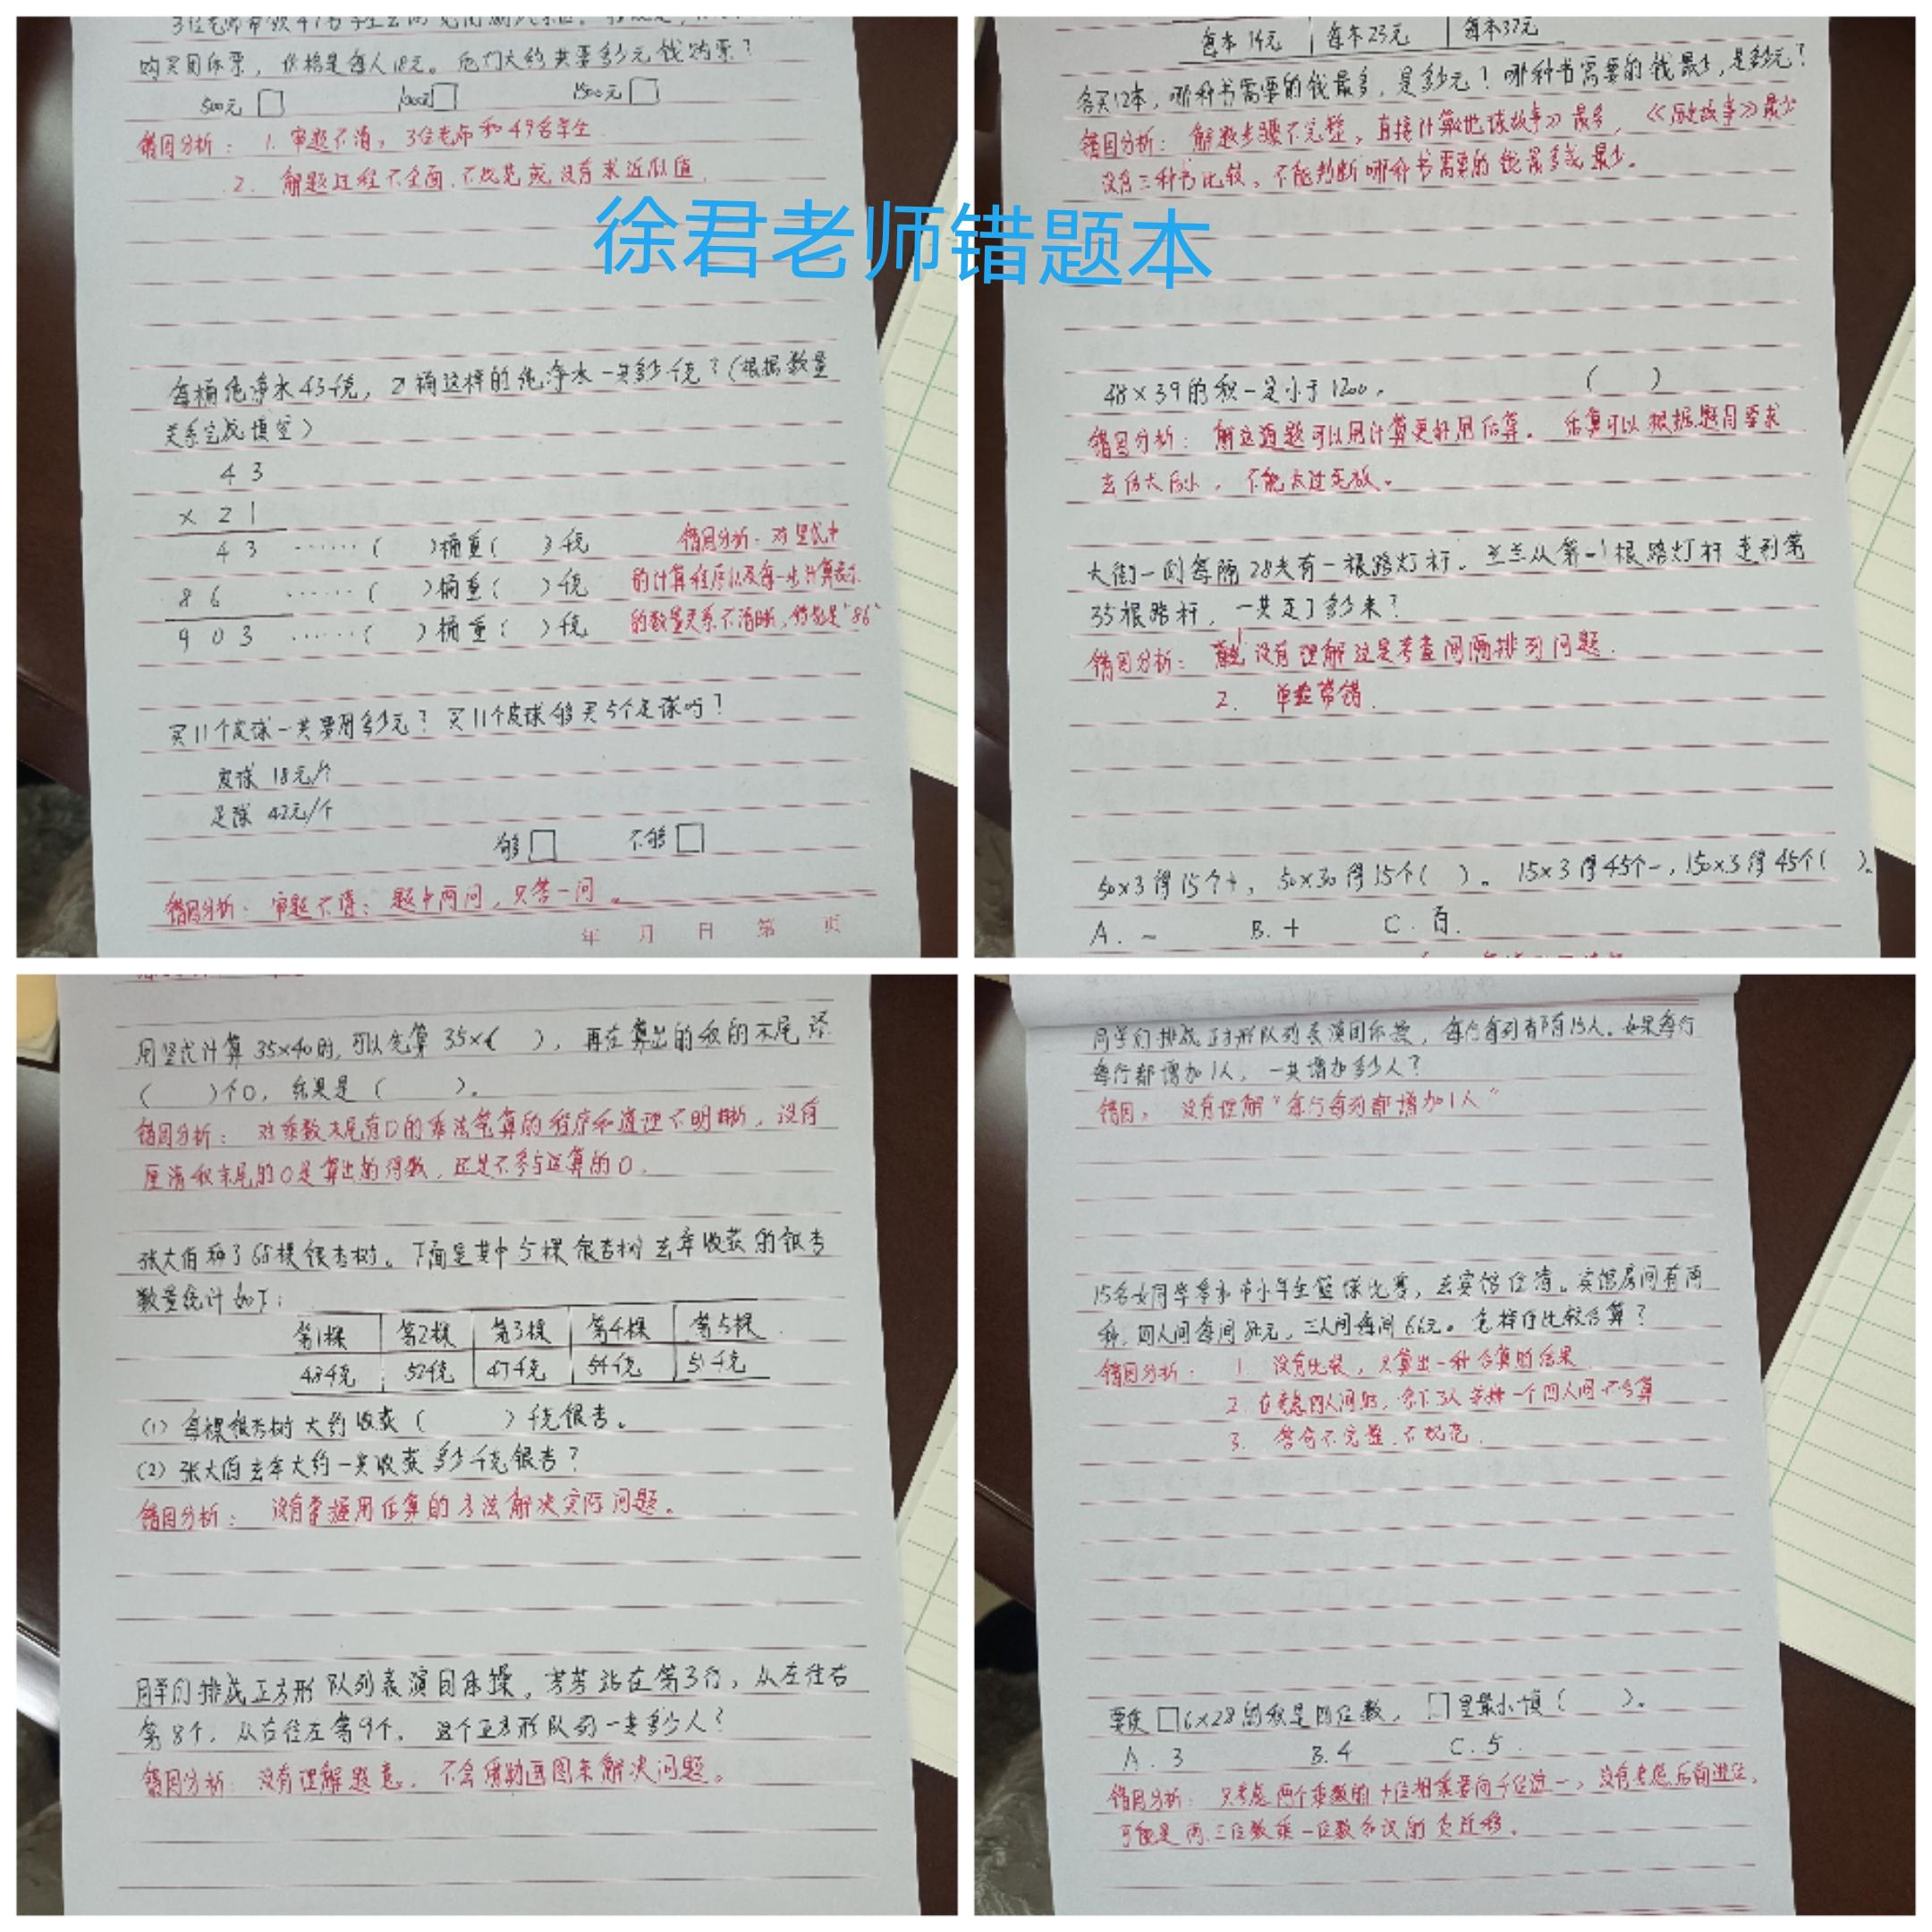 徐君老师错题本
购买团体票，价格是每人18元。他们大约共要多少元钱购票？
500元 □ 1000元 □ 1500元 □
错因分析： 1. 审题不清，3位老师和49名学生
2. 解题过程不全面、不规范或没有求近似值
每桶纯净水43千克，21桶这样的纯净水一共多少千克？(根据数量
关系完成填空)
4 3
× 2 1
4 3 ……（ ）桶重（ ）千克 错因分析：对竖式中
8 6 ……（ ）桶重（ ）千克 的计算程序以及每一步计算表示
9 0 3 ……（ ）桶重（ ）千克 的数量关系不清晰，特别是“86”
买11个皮球一共要用多少元？买11个皮球够买5个足球吗？
皮球 18元/个
足球 42元/个
够 □ 不够 □
错因分析：审题不清：题中两问，只答一问。
年 月 日 第 页
每本14元 每本23元 每本32元
各买12本，哪种书需要的钱最多，是多少元？哪种书需要的钱最少，是多少元？
错因分析：解题步骤不完整，直接计算《地球故事》最多，《历史故事》最少
没有三种书比较，不能判断哪种书需要的钱最多或最少。
48×39的积一定小于1200。 （ ）
错因分析：解这道题可以用计算更好用估算。估算可以根据题目要求
去估大估小，不能太过死板。
大街一侧每隔28米有一根路灯杆。兰兰从第一根路灯杆走到第
35根路杆，一共走了多少米？
错因分析： 1 没有理解这是考查间隔排列问题.
2. 单位带错.
50×3得15个十，50×30得15个（ ）。15×3得45个一，150×3得45个（ ）。
A. 一 B. 十 C. 百.
用竖式计算35×40时，可以先算35×（ ），再在算出的积的末尾添
（ ）个0，结果是（ ）。
错因分析：对乘数末尾有0的乘法笔算的程序和道理不明晰，没有
厘清积末尾的0是算出的得数，还是不参与运算的0.
张大伯种了65棵银杏树。下面是其中5棵银杏树去年收获的银杏
数量统计如下：
第1棵 第2棵 第3棵 第4棵 第5棵
48千克 52千克 47千克 54千克 51千克
（1）每棵银杏树大约收获（ ）千克银杏。
（2）张大伯去年大约一共收获多少千克银杏？
错因分析：没有掌握用估算的方法解决实际问题。
同学们排成正方形队列表演团体操，芳芳站在第3行，从左往右
第8个，从右往左第9个，这个正方形队列一共多少人？
错因分析：没有理解题意，不会借助画图来解决问题。
同学们排成正方形队列表演团体操，每行每列都有15人。如果每行
每行都增加1人，一共增加多少人？
错因：没有理解“每行每列都增加1人”
15名女同学参加市少年组篮球比赛，去宾馆住宿。宾馆房间有两
种，四人间每间 元，三人间每间66元。怎样住比较合算？
错因分析： 1. 没有比较，只算出一种合算的结果
2. 在考虑四人间时，余下3人安排一个四人间不合算
3. 答句不完整、不规范.
要使□6×28的积是四位数，□里最小填（ ）。
A. 3 B. 4 C. 5.
错因分析：只考虑两个乘数的十位相乘要向千位进一，没有考虑后面进位，
可能是两、三位数乘一位数知识的负迁移。